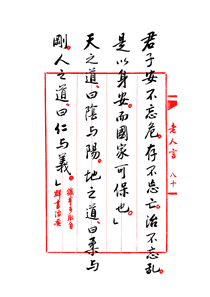 君子安不忘危。存不忘亡。治不忘亂。
是以身安。而國家可保也。」
天之道。曰陰与陽。地之道。曰柔与
剛。人之道。曰仁与義。」
群書治要
老人言 八十